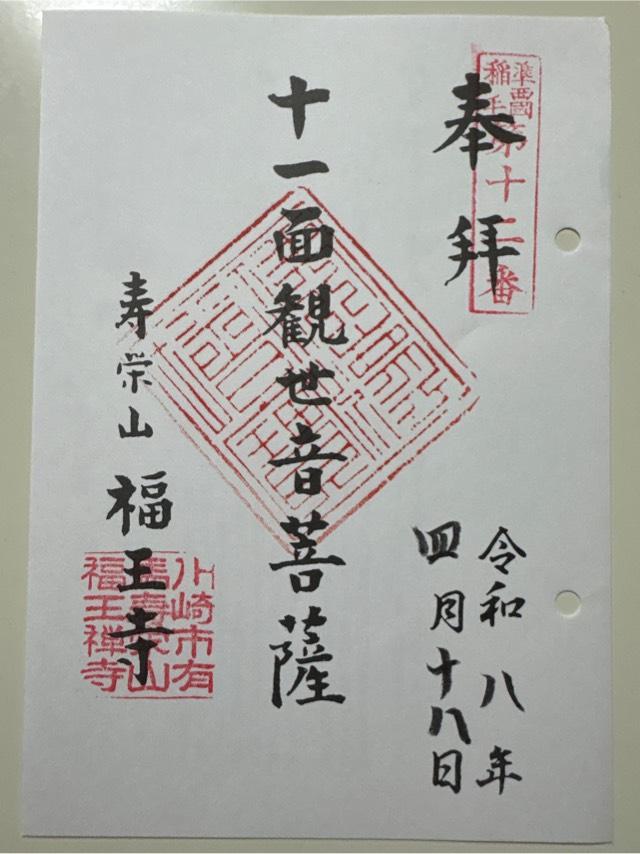 準西國
稲毛
第十二番
奉拝
十一面観世音菩薩
寿栄山 福王寺
川崎市有
馬壽榮山
福王禅寺
令和八年
四月十八日